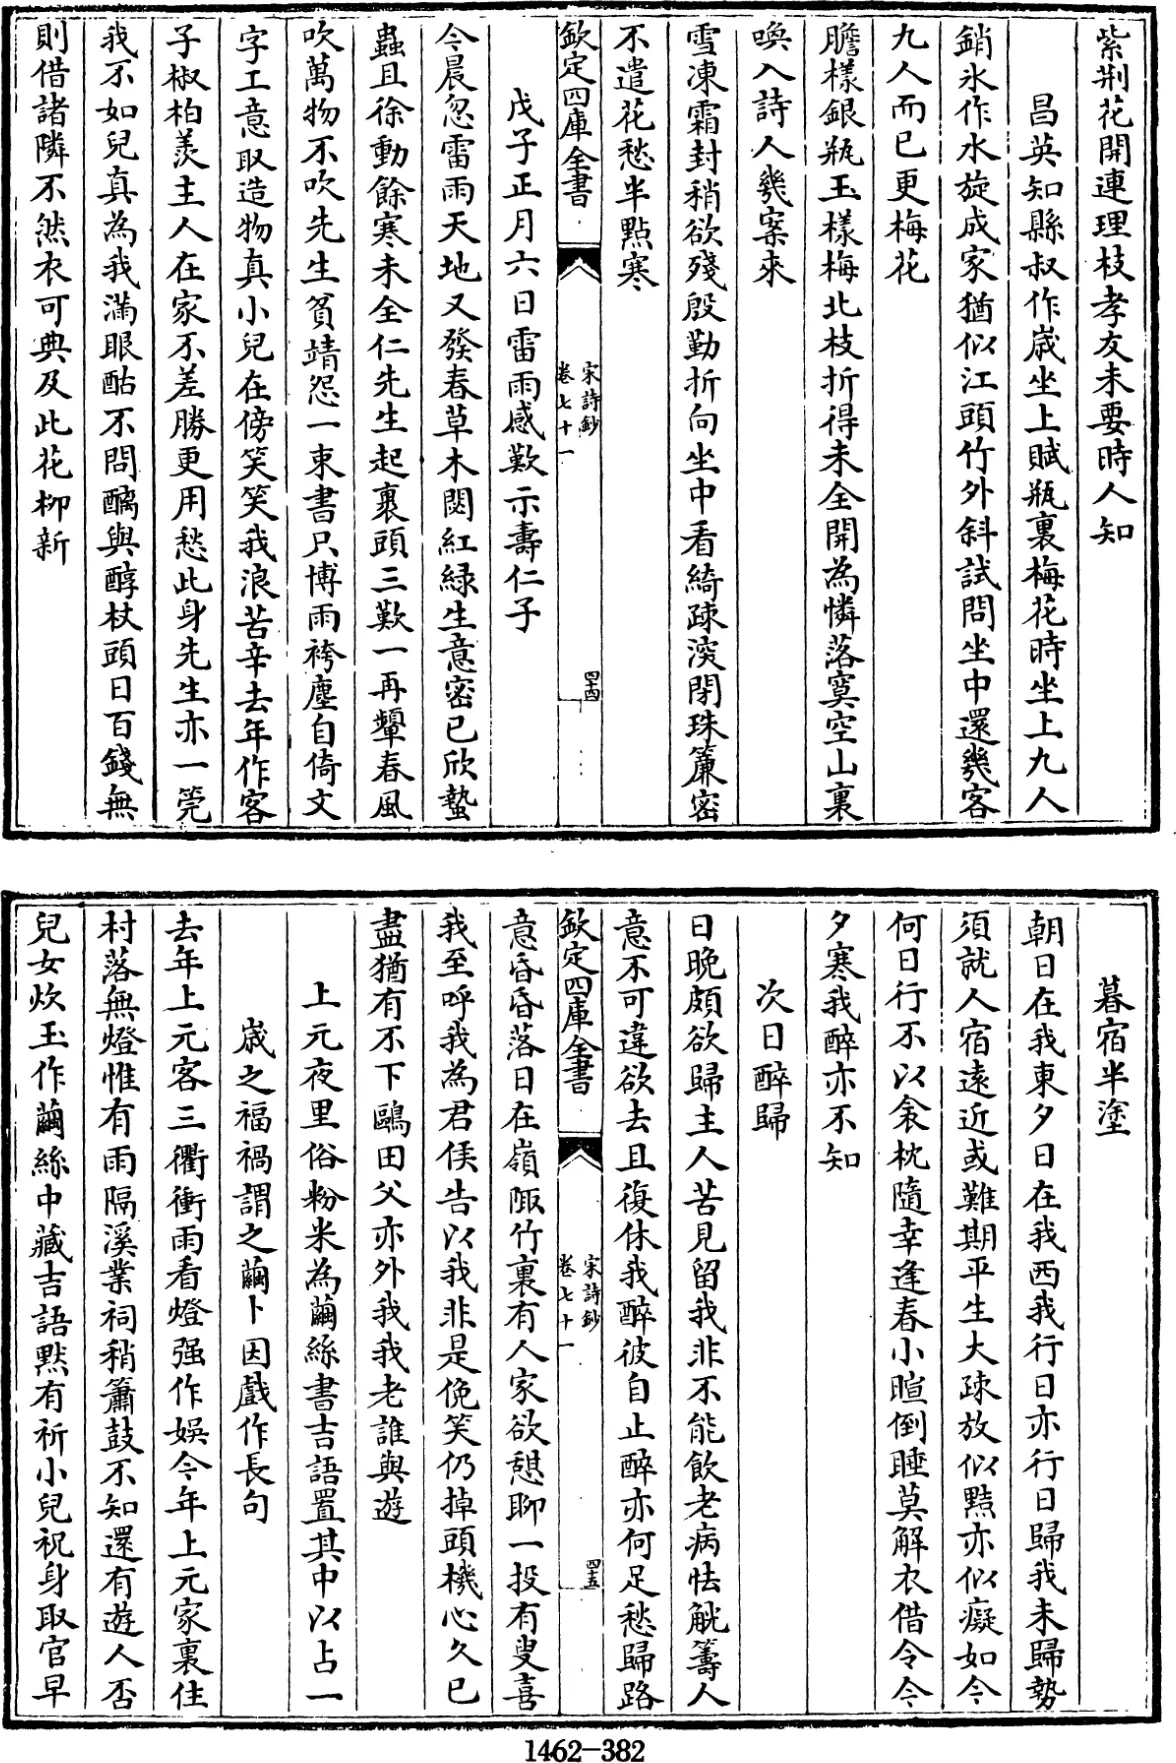 紫荆花開連理枝孝友未要時人知
昌英知縣叔作嵗坐上賦瓶裏梅花時坐上九人
銷氷作水旋成家猶似江頭竹外斜試問坐中還幾客
九人而已更梅花
膽樣銀瓶玉樣梅北枝折得未全開為憐落寞空山裏
喚入詩人幾案來
雪凍霜封稍欲殘殷勤折向坐中看綺疎淡閉珠簾密
不遣花愁半點寒
欽定四庫全書
宋詩鈔
卷七十一
四十四
戊子正月六日雷雨感歎示壽仁子
今晨忽雷雨天地又發春草木閟紅緑生意密已欣蟄
蟲且徐動餘寒未全仁先生起裹頭三歎一再顰春風
吹萬物不吹先生貧靖怨一束書只博雨袴塵自倚文
字工意取造物真小兒在傍笑笑我浪苦辛去年作客
子椒柏羨主人在家不差勝更用愁此身先生亦一筦
我不如兒真為我滿眼酤不問醨與醇杖頭日百錢無
則借諸隣不然衣可典及此花柳新
暮宿半塗
朝日在我東夕日在我西我行日亦行日歸我未歸勢
須就人宿逺近或難期平生大疎放似黠亦似癡如今
何日行不以衾枕隨幸逢春小暄倒睡莫解衣借令今
夕寒我醉亦不知
次日醉歸
日晩頗欲歸主人苦見留我非不能飲老病怯觥籌人
意不可違欲去且復休我醉彼自止醉亦何足愁歸路
欽定四庫全書
宋詩鈔
卷七十一
四十五
意昏昏落日在嶺陬竹裏有人家欲憩聊一投有叟喜
我至呼我為君侯告以我非是俛笑仍掉頭機心久已
盡猶有不下鷗田父亦外我我老誰與遊
上元夜里俗粉米為繭絲書吉語置其中以占一
嵗之福禍謂之繭卜因戲作長句
去年上元客三衢衝雨看燈强作娛今年上元家裏住
村落無燈惟有雨隔溪業祠稍簫鼓不知還有遊人否
兒女炊玉作繭絲中藏吉語黙有祈小兒祝身取官早
1462-382